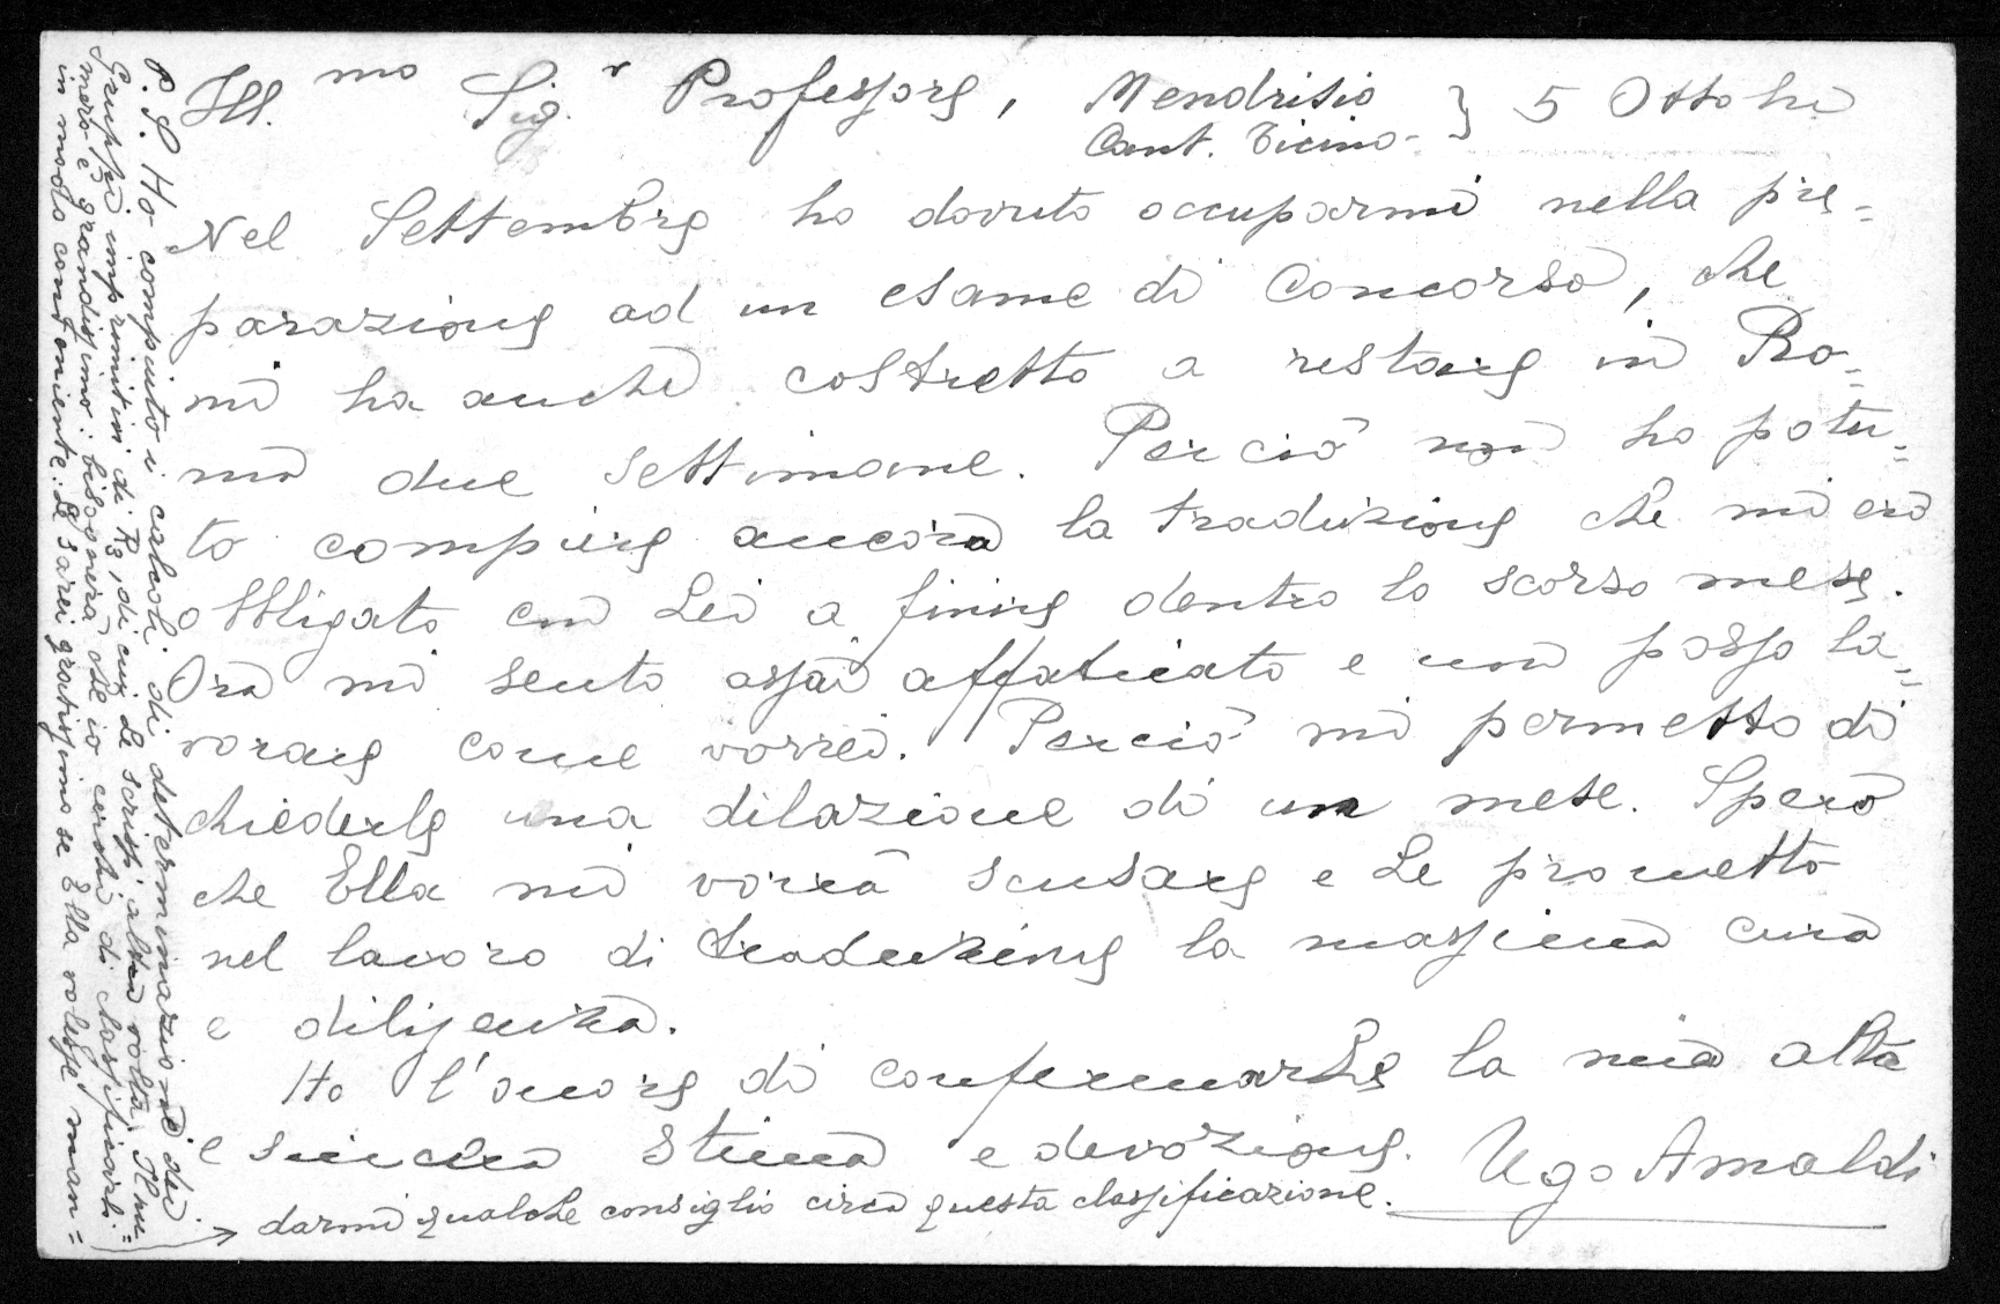 Ill.mo Sig.r Professore, Mendrisio } 5 Ottobre
Cant. Ticino-
Nel Settembre ho dovuto occuparmi nella pre=
parazione ad un esame di Concorso, che
mi ha anche costretto a restare in Ro=
ma due settimane. Perciò non ho potu=
to compiere ancora la traduzione che mi ero
obbligato con Lei a finire dentro lo scorso mese.
Ora mi sento assai affaticato e non posso la=
vorare come vorrei. Perciò mi permetto di
chiederle una dilazione di un mese. Spero
che Ella mi vorrà scusare e Le prometto
nel lavoro di traduzione la massima cura
e diligenza.
Ho l'onore di confermarLe la mia alta
e sincera stima e devozione. Ugo Amaldi
P.S. Ho compiuto i calcoli di determinazione dei
Gruppi imprimitivi di R3, di cui Le scrissi altra volta. Il nu=
mero è grandissimo: bisognerà che io cerchi di classificarli
in modo conveniente: Le sarei gratissimo se Ella volesse man=
darmi qualche consiglio circa questa classificazione.